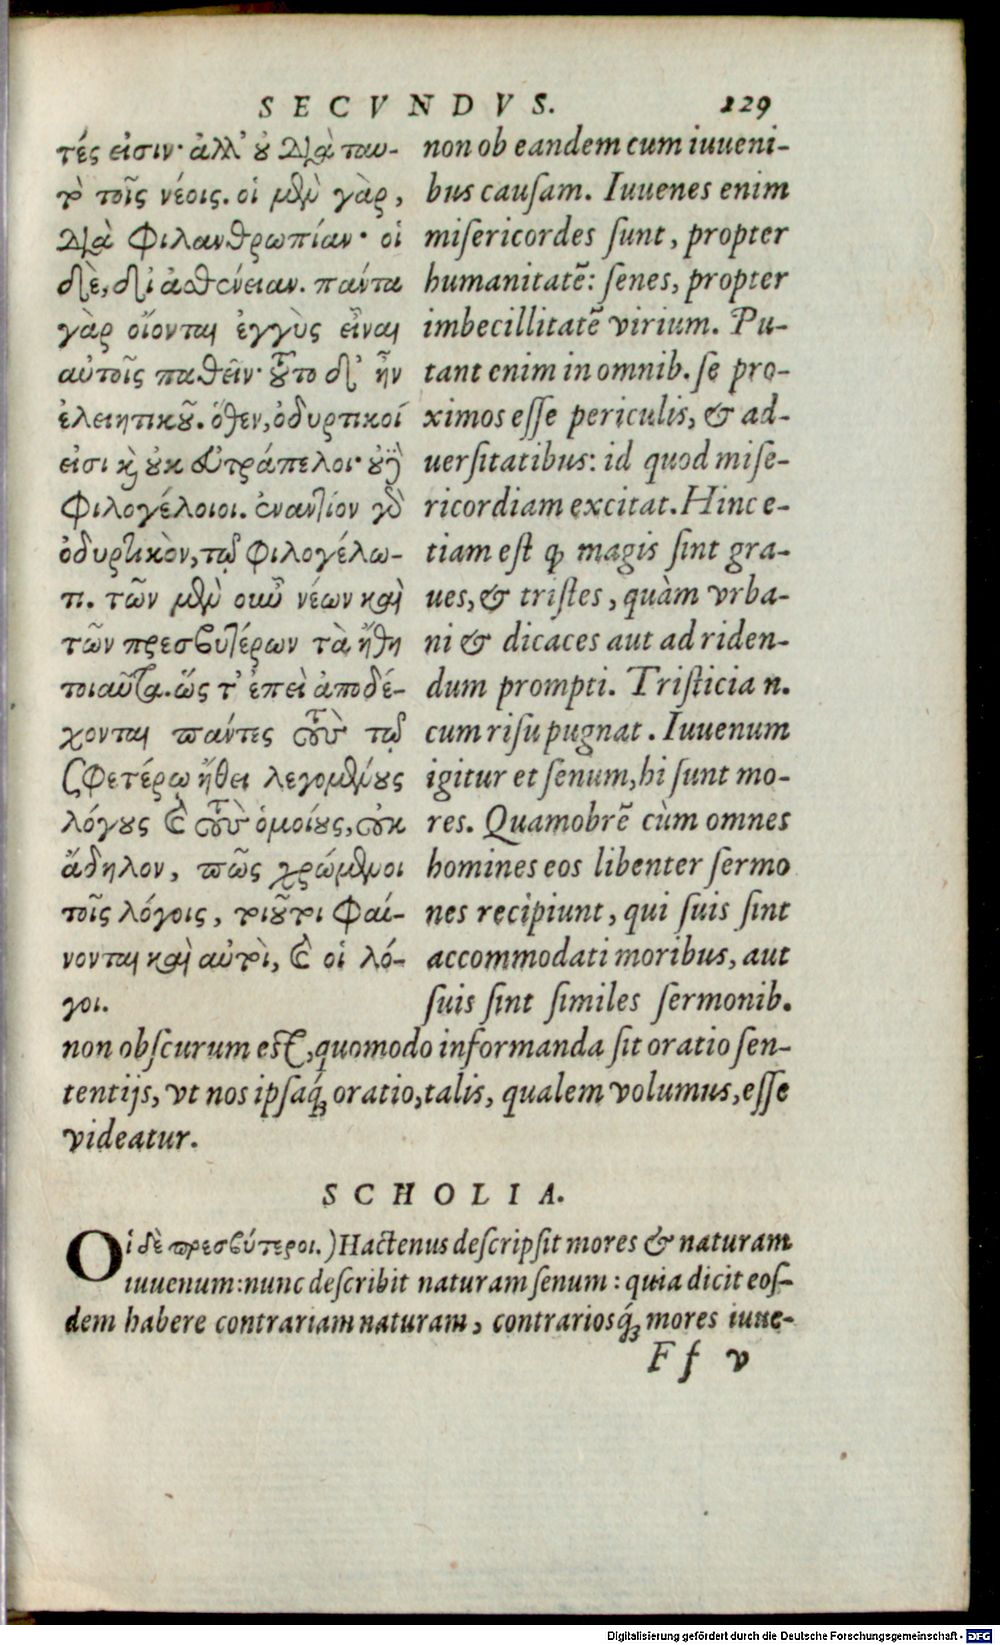 SECVNDVS. 129
τές εἰσιν· ἀλλ' ȣ διὰ ταυ-
τὸ τοῖς νέοις. οἱ μὲν γὰρ,
διὰ φιλανθρωπίαν· οἱ
δὲ, δι' ἀσθένειαν. πάντα
γὰρ οἴονται ἐγγὺς εἶναι
αὐτοῖς παθεῖν· τȣ͂το δ' ἦν
ἐλεητικȣ͂. ὅθεν, ὀδυρτικοί
εἰσι καὶ ȣκ εὐτράπελοι· ȣδὲ
φιλογέλοιοι. ἐναντίον γὸ
ὀδυρτικὸν, τῷ φιλογέλω-
τι. τῶν μὲν οὖν νέων καὶ
τῶν πρεσβυτέρων τὰ ἤθη
τοιαῦτα. ὥς τ' ἐπεὶ ἀποδέ-
χονται πάντες τοὺς τῷ
σφετέρῳ ἤθει λεγομένȣς
λόγȣς καὶ τοὺς ὁμοίȣς, οὐκ
ἄδηλον, πῶς χρώμενοι
τοῖς λόγοις, τοιȣ͂τοι φαί-
νονται καὶ αὐτοὶ, καὶ οἱ λό-
γοι.
non ob eandem cum iuueni-
bus cauſam. Iuuenes enim
miſericordes ſunt, propter
humanitatē: ſenes, propter
imbecillitatē virium. Pu-
tant enim in omnib. ſe pro-
ximos eſſe periculis, & ad-
uerſitatibus: id quod miſe-
ricordiam excitat. Hinc e-
tiam eſt ꝙ magis ſint gra-
ues, & triſtes, quàm vrba-
ni & dicaces aut ad riden-
dum prompti. Triſticia n.
cum riſu pugnat. Iuuenum
igitur et ſenum, hi ſunt mo-
res. Quamobrē cùm omnes
homines eos libenter ſermo
nes recipiunt, qui ſuis ſint
accommodati moribus, aut
ſuis ſint ſimiles ſermonib.
non obſcurum eſt, quomodo informanda ſit oratio ſen-
tentijs, vt nos ipſaq́; oratio, talis, qualem volumus, eſſe
videatur.
SCHOLIA.
Οἱ δὲ πρεσβύτεροι.) Hactenus deſcripſit mores & naturam
iuuenum: nunc deſcribit naturam ſenum: quia dicit eoſ-
dem habere contrariam naturam, contrarioſq́; mores iuue-
Ff v
Digitalisierung gefördert durch die Deutsche Forschungsgemeinschaft - DFG